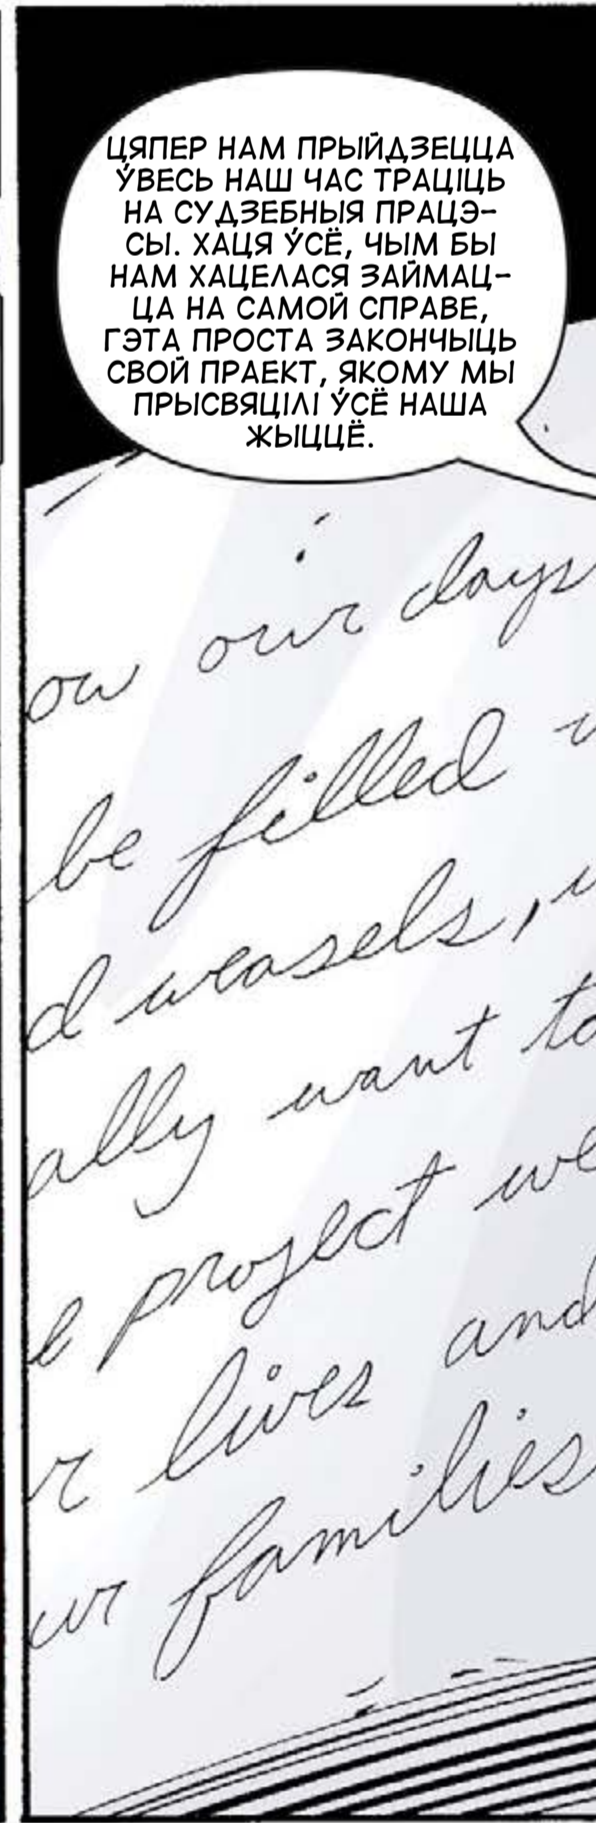 ЦЯПЕР НАМ ПРЫЙДЗЕЦЦА
ЎВЕСЬ НАШ ЧАС ТРАЦІЦЬ
НА СУДЗЕБНЫЯ ПРАЦЭ-
СЫ. ХАЦЯ ЎСЁ, ЧЫМ БЫ
НАМ ХАЦЕЛАСЯ ЗАЙМАЦ-
ЦА НА САМОЙ СПРАВЕ,
ГЭТА ПРОСТА ЗАКОНЧЫЦЬ
СВОЙ ПРАЕКТ, ЯКОМУ МЫ
ПРЫСВЯЦІЛІ ЎСЁ НАША
ЖЫЦЦЁ.
ow our days
be filled
d weasels,
ally want to
e project we
r lives and
ur families